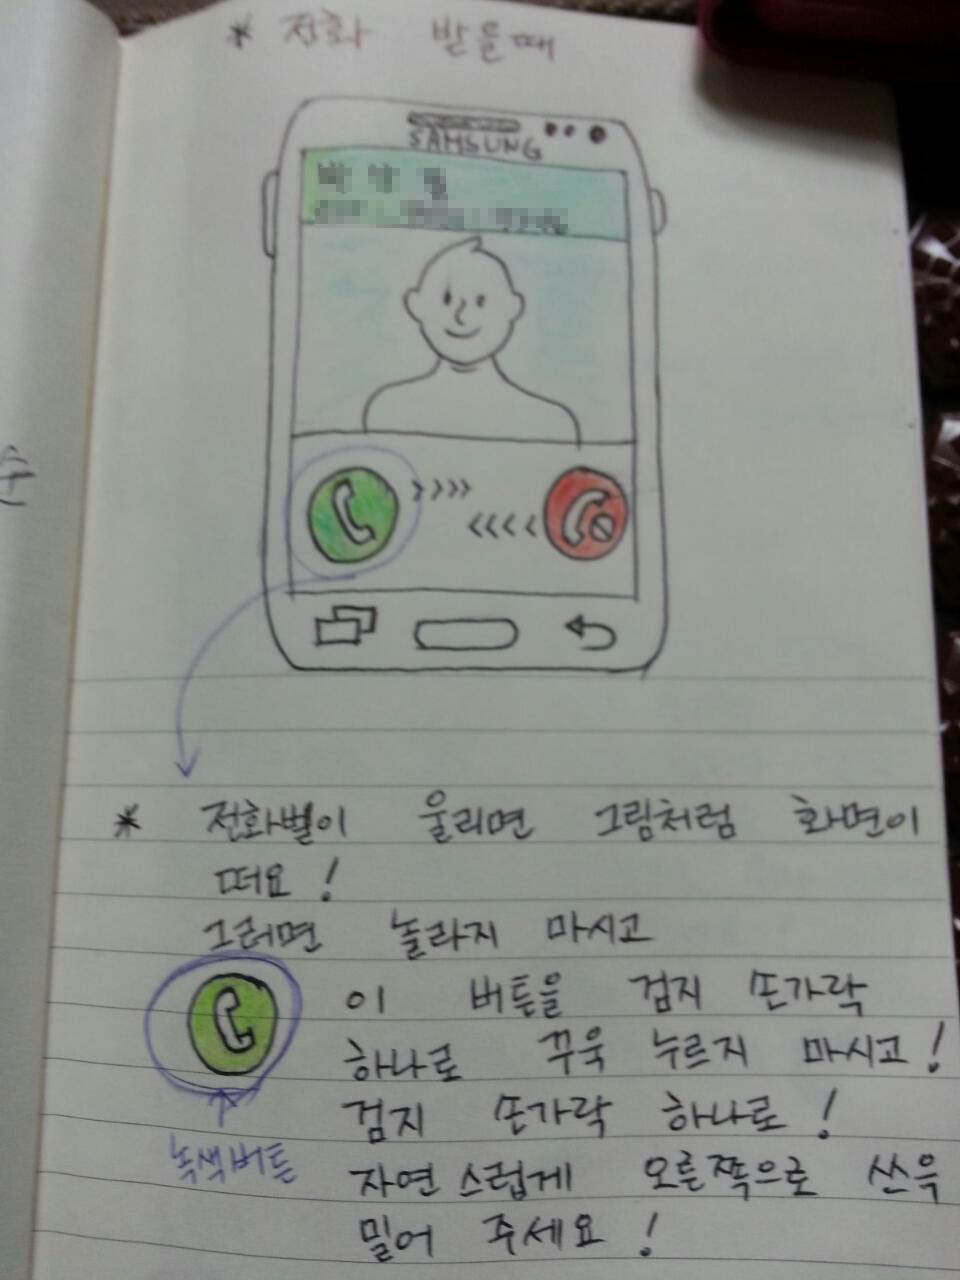 * 전화 받을때
SAMSUNG
* 전화벨이 울리면 그림처럼 화면이
떠요!
그러면 놀라지 마시고
이 버튼을 검지 손가락
하나로 꾸욱 누르지 마시고!
검지 손가락 하나로!
녹색버튼
자연스럽게 오른쪽으로 쓰윽
밀어 주세요!